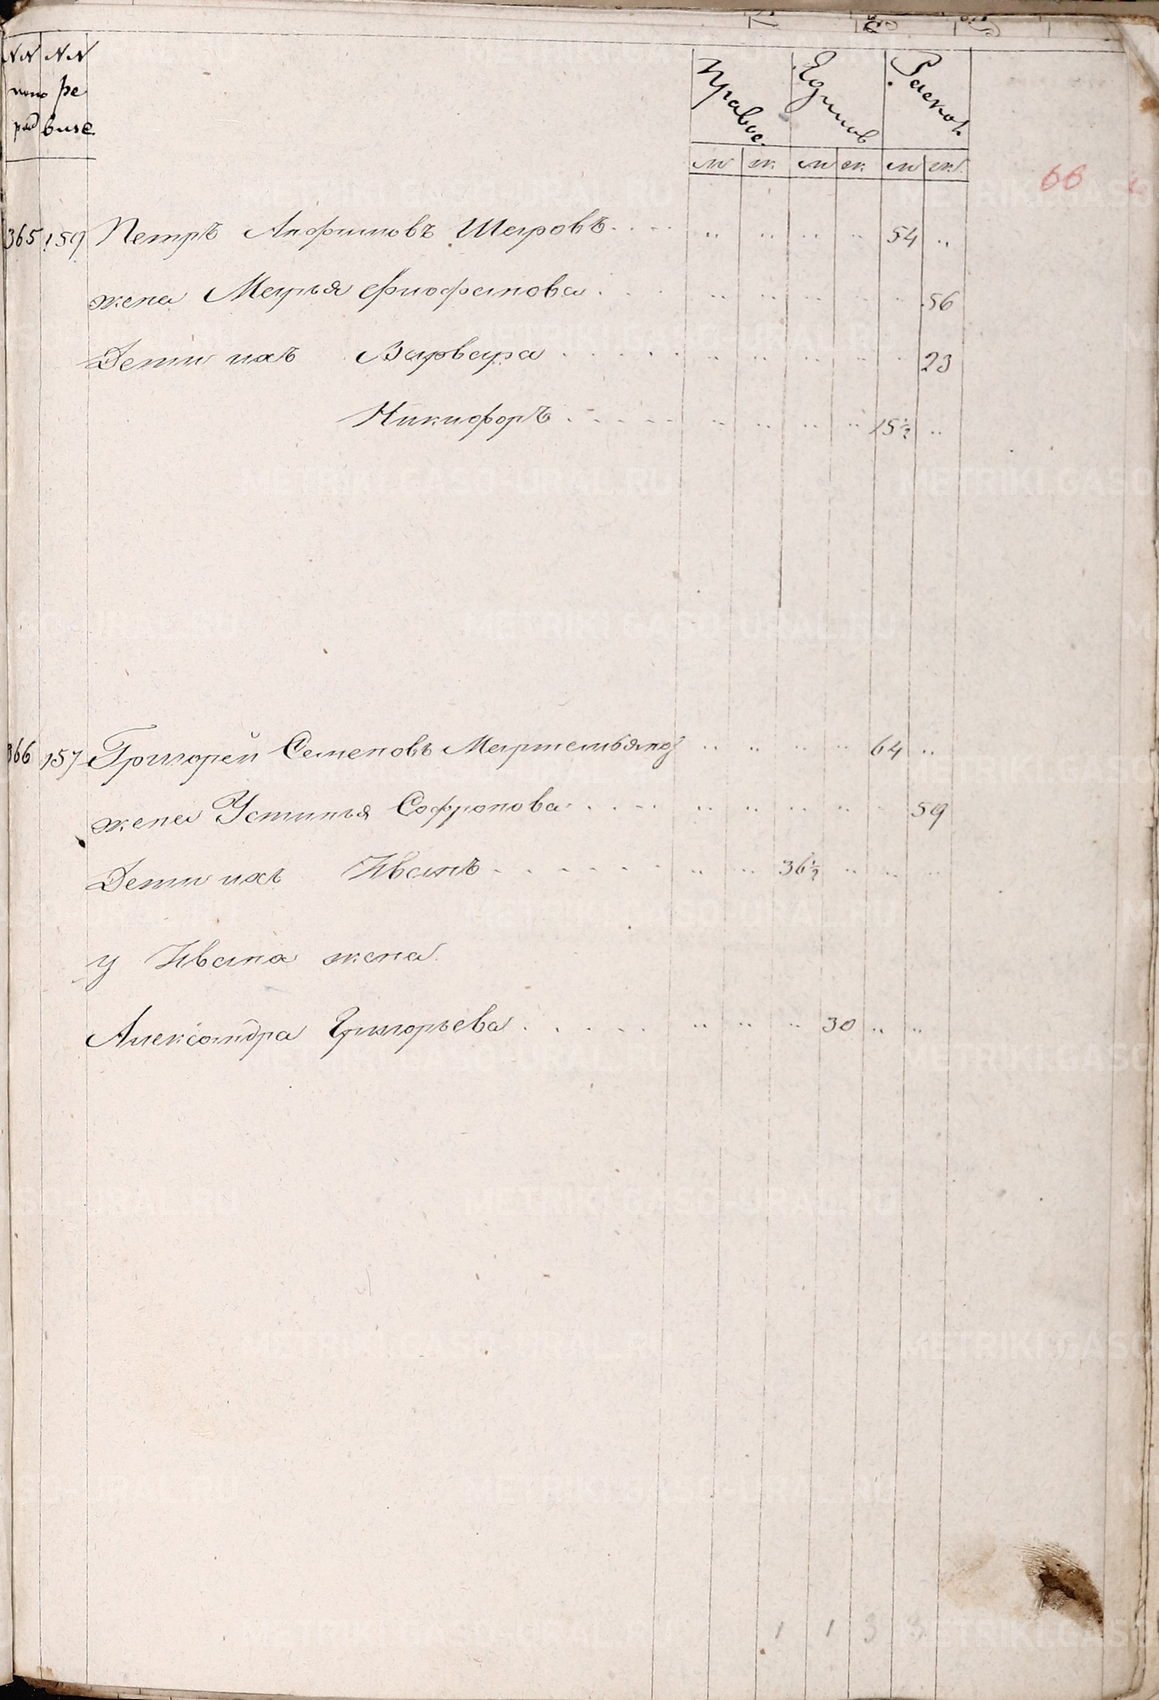 NN NN
по ре
ряд визс.
Правос. Единов Раскол.
м ж. м ж. м ж.
66
365 159 Петръ Анфимовъ Шаровъ 54
жена Марья Фиофанова 56
Дети ихъ Варвара 23
Никифоръ 15½
366 157 Григорей Семеновъ Мартемьянов 64
жена Устинья Софронова 59
Дети ихъ Иванъ 36½
у Ивана жена
Александра Григорьева 30
1 1 3 3
METRIKI.GASO-URAL.RU